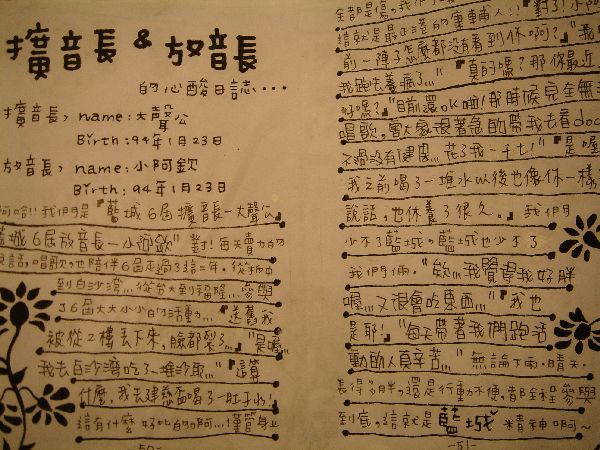 擴音長 & 放音長
的心酸日誌...
擴音長, name: 大聲公
Birth: 94年1月23日
放音長, name: 小阿欽
Birth: 94年1月23日
阿哈!! 我們是『藍城6屆擴音長—大聲公』
藍城6屆放音長—小阿欽" 對! 每天賣力的
說話, 唱歌, 也陪伴6屆走過3這一年。從
到白沙灣... 從台大到福隆... 參與
36屆大大小小的活動..."
被從2樓丟下來, 臉都裂了..."『是喔...
我去白沙灣吃了一堆沙耶..."『這算
什麼, 我去建慈盃喝了一肚子水!
這有什麼好比的啊... 僅管身上
-50-
全都是傷, 我們
這就是最走港的重輔人!!』對了! 小阿
前一陣子怎麼都沒看到你啊?』"我
我跑去養病了..."『真的嗎? 那你最近
好嗎?』"目前還ok啦! 那時候完全無法
唱歌, 害大家很著急的帶我去看doc
不過沒有健保... 花了我一千七!"『是喔
我之前喝了一堆水以後也像你一樣
說話, 也休養了很久。 我們
少不了藍城。藍城也少不了
我們倆。"欸... 我覺得我好胖
喔... 又很會吃東西..."『我也
是耶!』"每天帶著我們跑活
動的人真辛苦..." 無論下雨、晴天、
長得多胖。還是行動不便, 都全程參與
到底。這就是藍城精神啊~
-51-